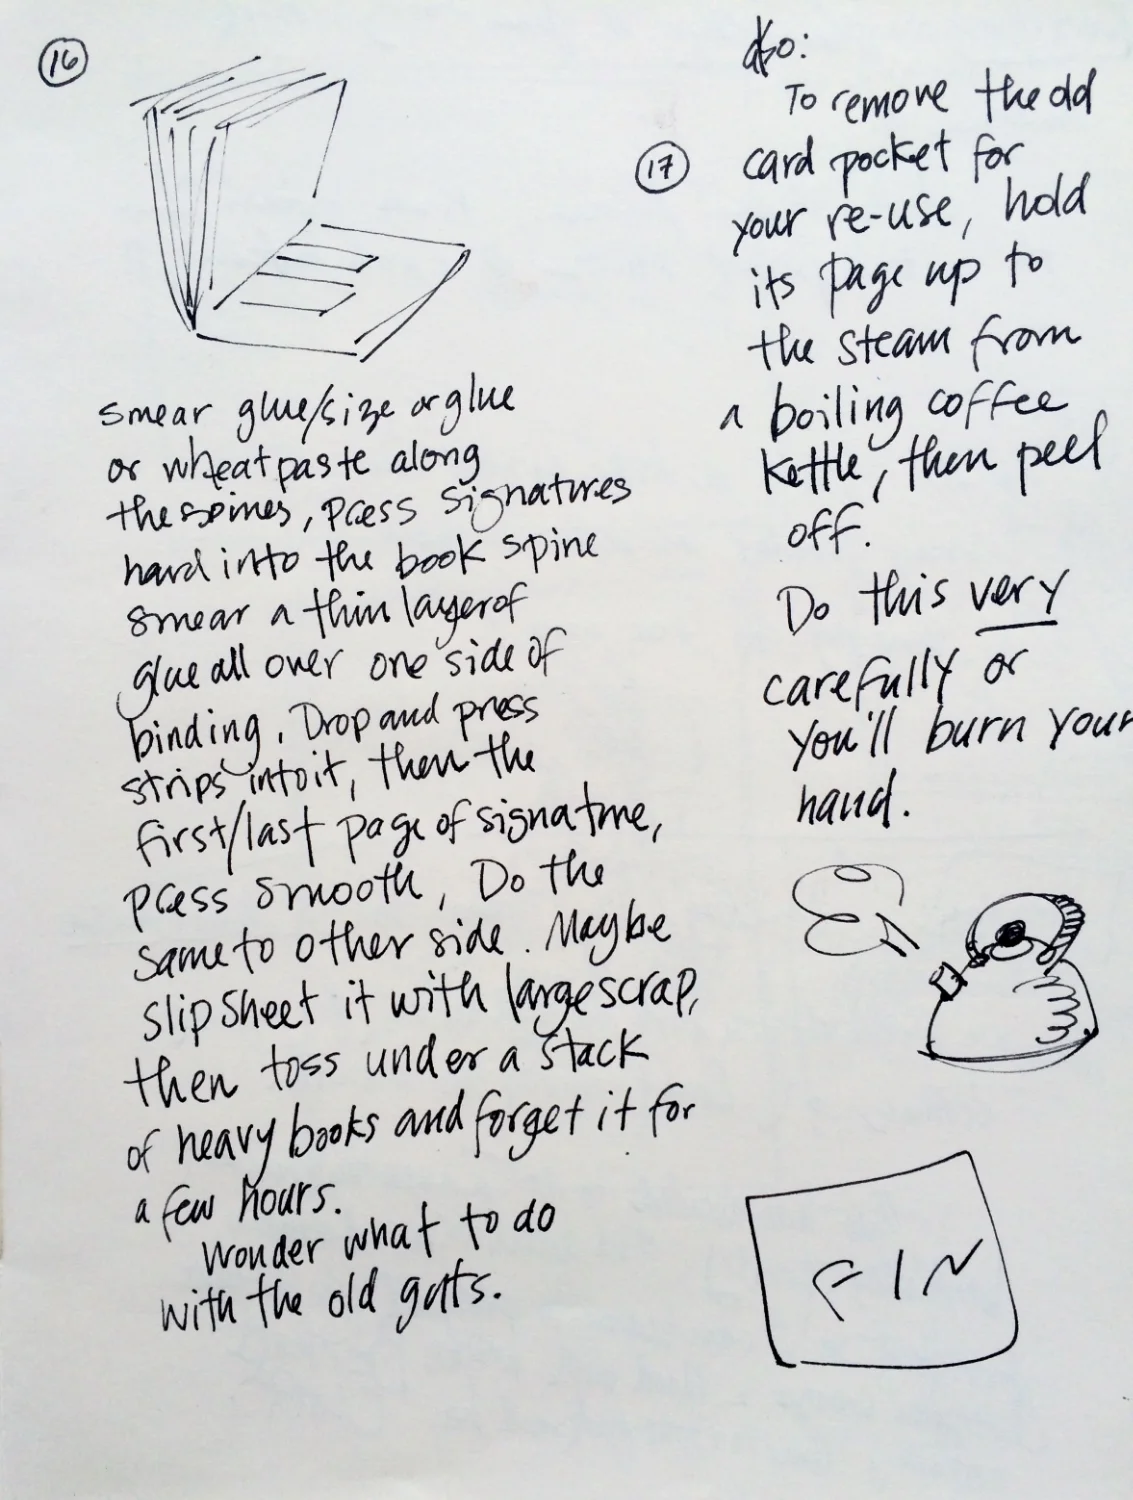 16
smear glue/size or glue
or wheatpaste along
the spines, press signatures
hard into the book spine
smear a thin layer of
glue all over one side of
binding. Drop and press
strips into it, then the
first/last page of signature,
press smooth, Do the
same to other side. Maybe
slipsheet it with large scrap,
then toss under a stack
of heavy books and forget it for
a few hours.
Wonder what to do
with the old guts.
also:
17
To remove the old
card pocket for
your re-use, hold
its page up to
the steam from
a boiling coffee
kettle, then peel
off.
Do this very
carefully or
you'll burn your
hand.
FIN